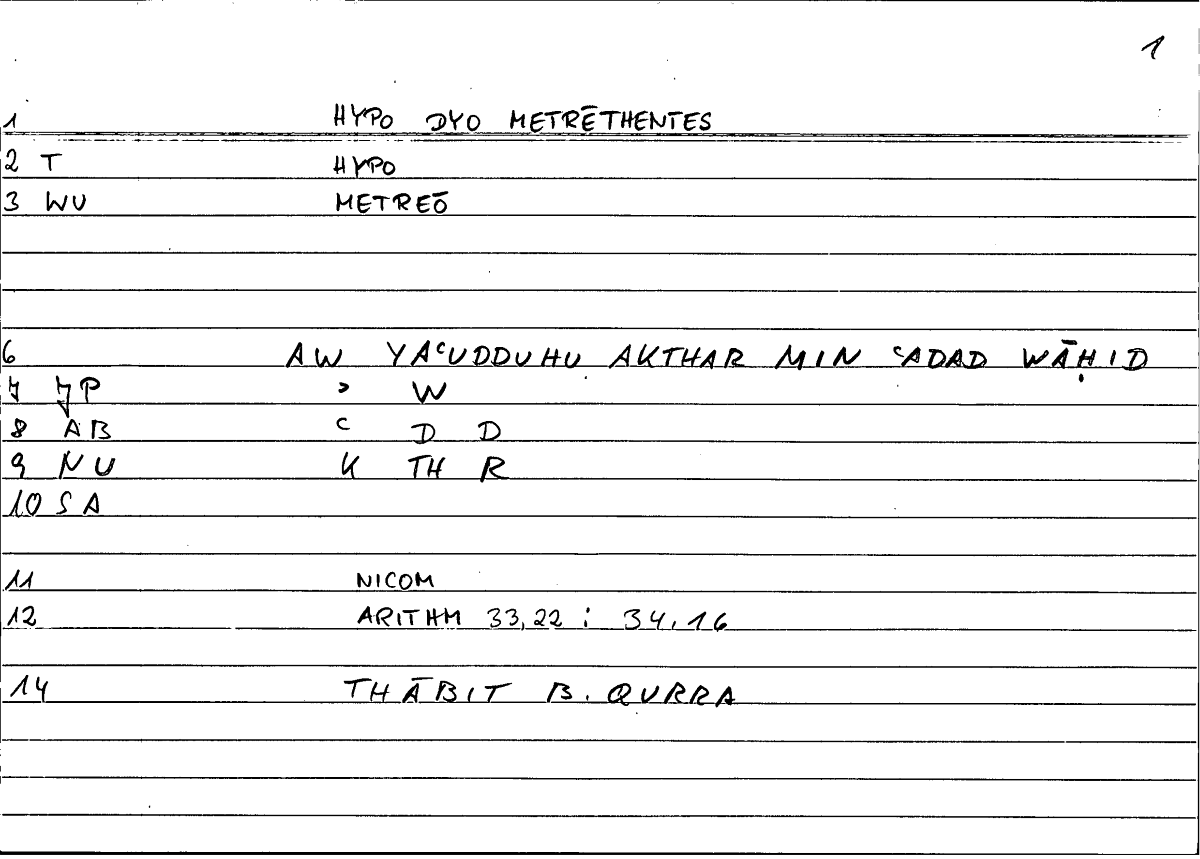 1
1 HYPO DYO METRĒTHENTES
2 T HYPO
3 WU METREŌ
6 AW YAʿUDDUHU AKTHAR MIN ʿADAD WĀḤID
7 JP ʾ W
8 AB ʿ D D
9 NU K TH R
10 SA
11 NICOM
12 ARITHM 33,22 ; 34,16
14 THĀBIT B. QURRA